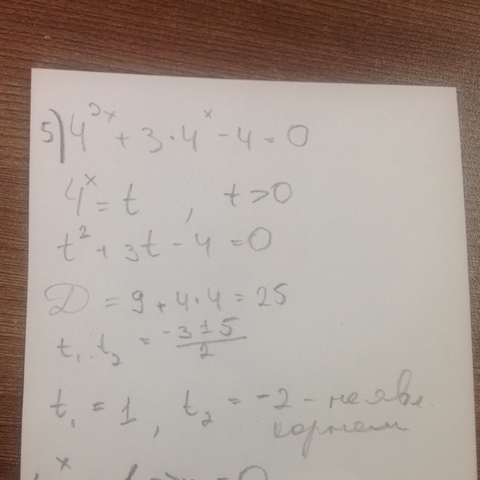 5) 4^{2x} + 3·4^x - 4 = 0
4^x = t , t > 0
t^2 + 3t - 4 = 0
D = 9 + 4·4 = 25
t_1, t_2 = \frac{-3 ± 5}{2}
t_1 = 1, t_2 = -2 - не явл.
корнем